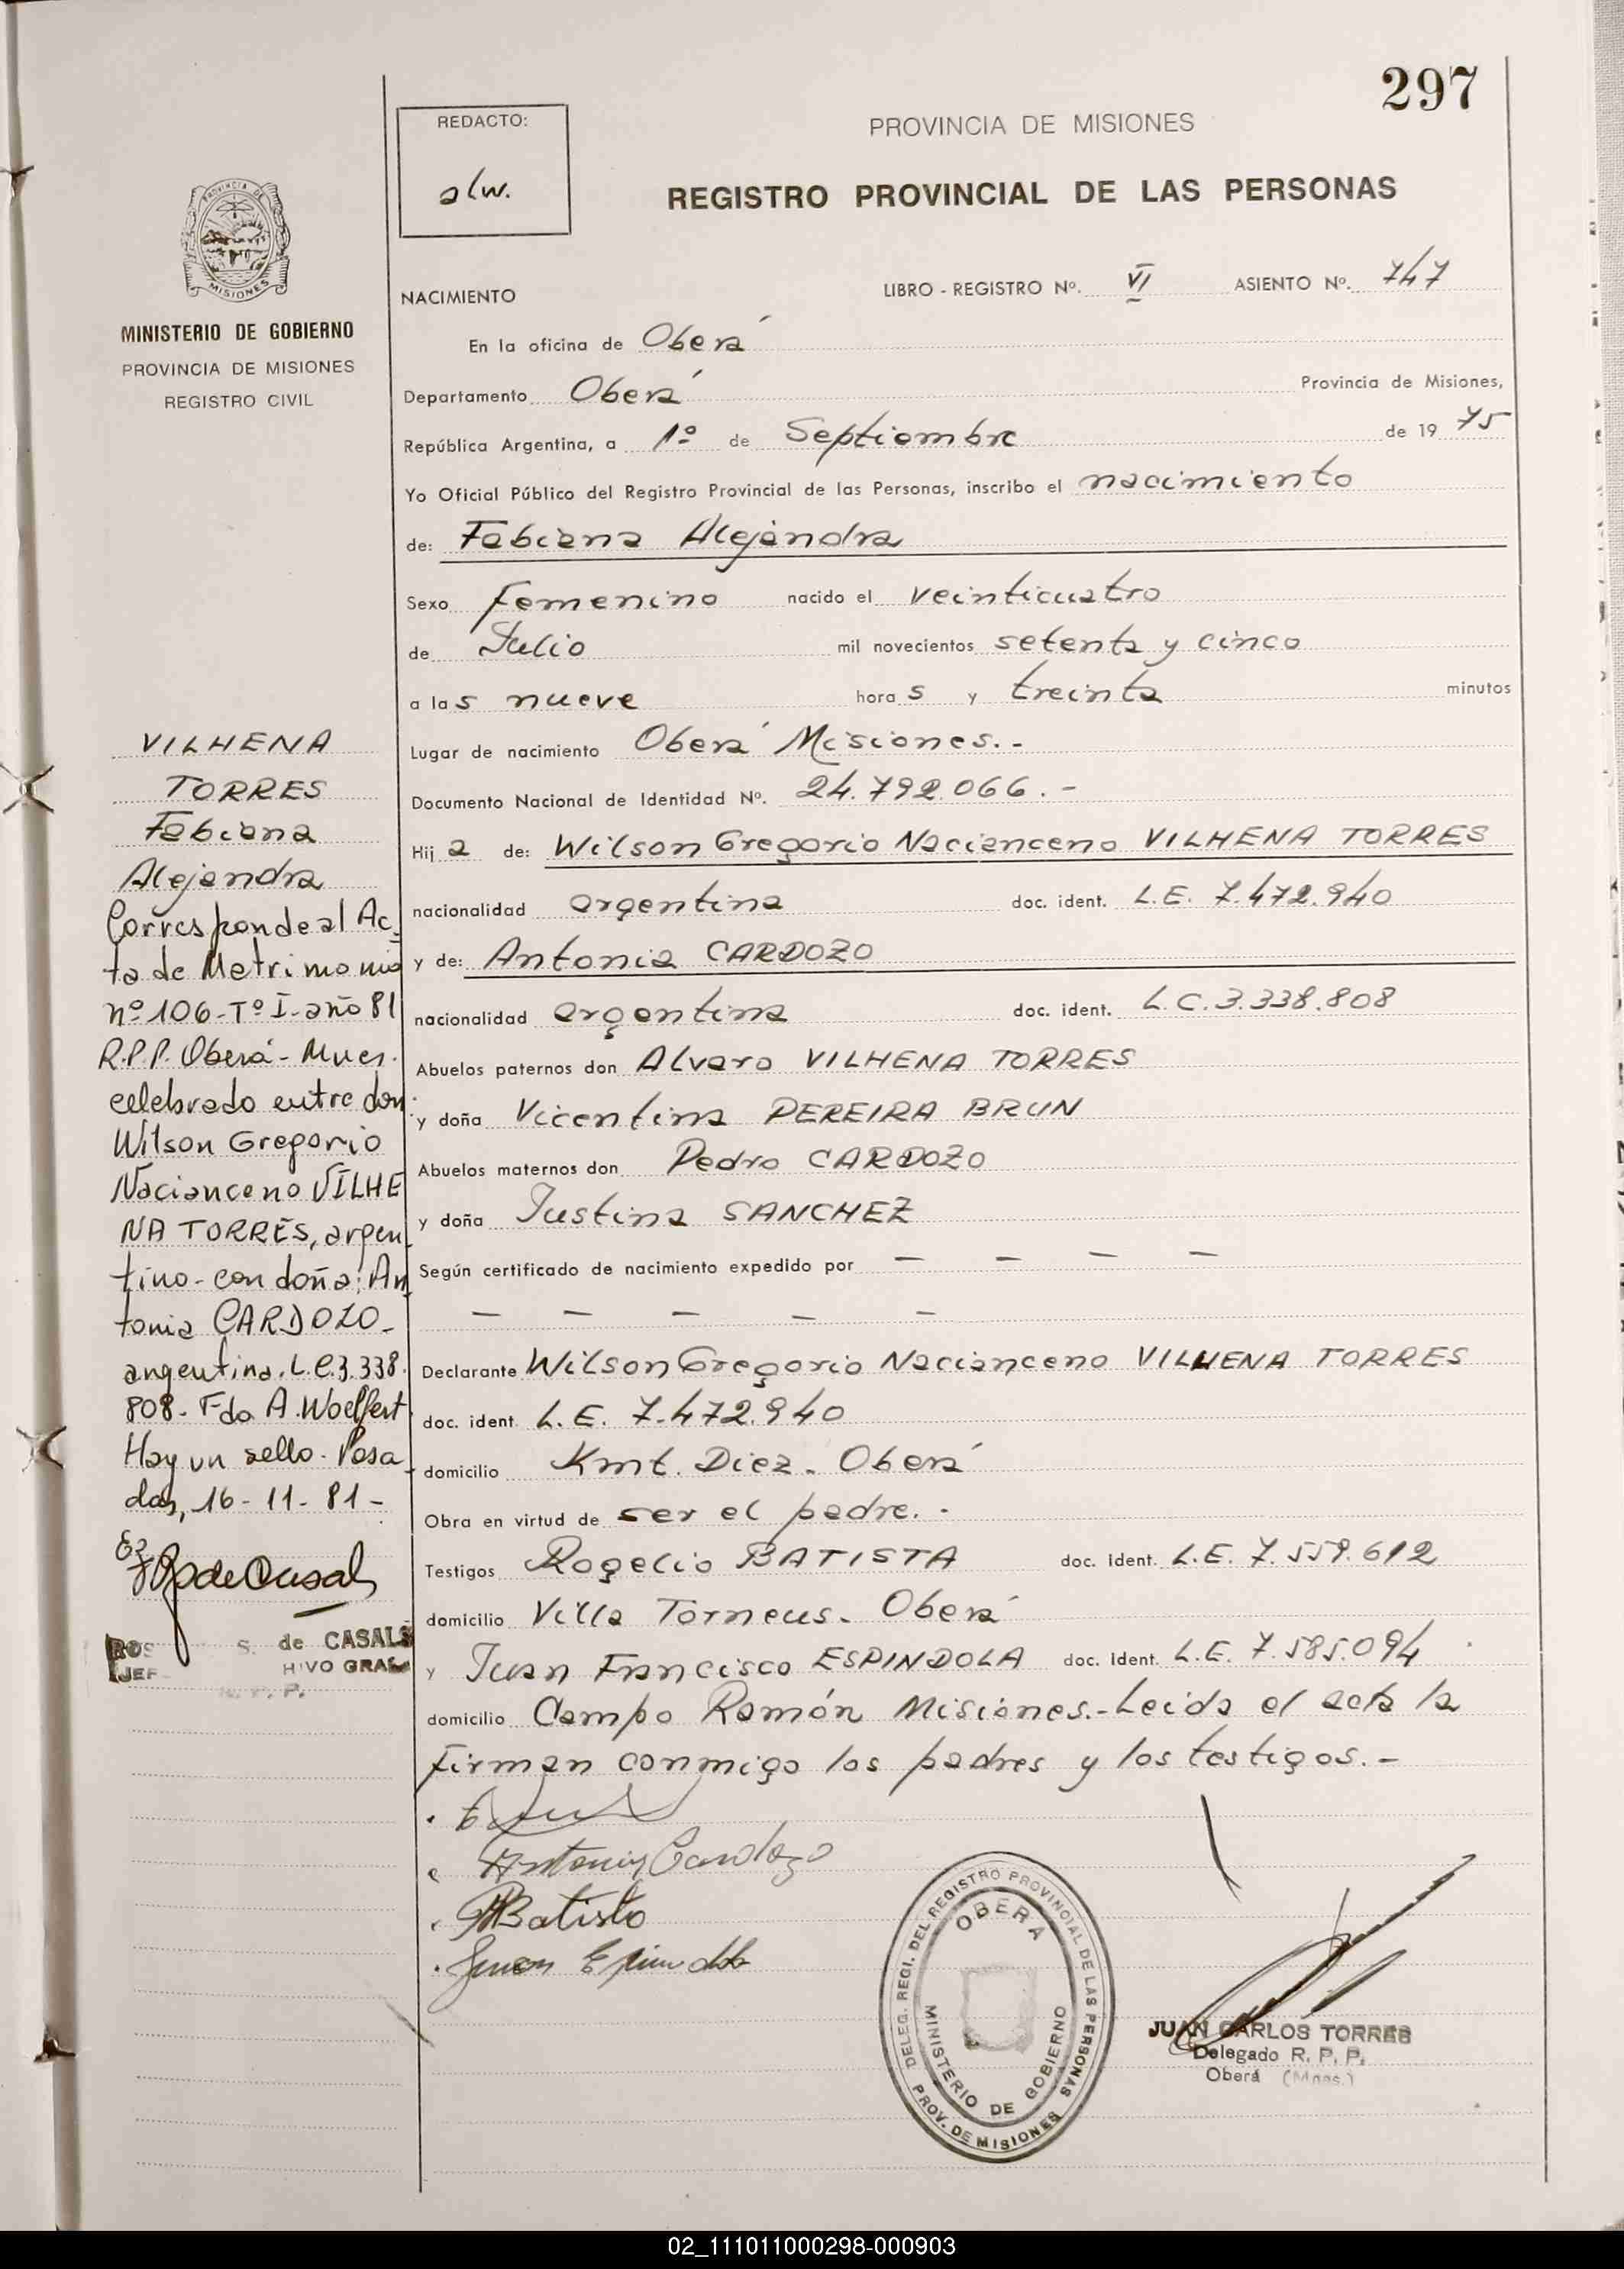 297
REDACTO:
alw.
PROVINCIA DE MISIONES
REGISTRO PROVINCIAL DE LAS PERSONAS
PROVINCIA DE
MISIONES
MINISTERIO DE GOBIERNO
PROVINCIA DE MISIONES
REGISTRO CIVIL
NACIMIENTO
LIBRO - REGISTRO Nº. VI ASIENTO Nº. 747
En la oficina de Oberá
Departamento Oberá Provincia de Misiones,
República Argentina, a 1º de Septiembre de 19 75
Yo Oficial Público del Registro Provincial de las Personas, inscribo el nacimiento
de: Fabiana Alejandra
Sexo femenino nacido el veinticuatro
de Julio mil novecientos setenta y cinco
a las nueve horas y treinta minutos
Lugar de nacimiento Oberá Misiones.-
Documento Nacional de Identidad Nº. 24.792.066.-
Hija de: Wilson Gregorio Nacianceno VILHENA TORRES
nacionalidad argentina doc. ident. L.E. 7.472.940
y de: Antonia CARDOZO
nacionalidad argentina doc. ident. L.C. 3.338.808
Abuelos paternos don Alvaro VILHENA TORRES
y doña Vicentina PEREIRA BRUN
Abuelos maternos don Pedro CARDOZO
y doña Justina SANCHEZ
Según certificado de nacimiento expedido por — — — —
— — — — —
Declarante Wilson Gregorio Nacianceno VILHENA TORRES
doc. ident. L.E. 7.472.940
domicilio Kmt. Diez. Oberá
Obra en virtud de ser el padre.-
Testigos Rogelio BATISTA doc. ident. L.E. 7.559.612
domicilio Villa Torneus. Oberá
y Juan Francisco ESPINDOLA doc. ident. L.E. 7.585.094
domicilio Campo Ramón Misiones.-Leida el acta la
firman conmigo los padres y los testigos.-
Antonia Cardozo
RBatista
Juan Espindola
VILHENA
TORRES
Fabiana
Alejandra
Corresponde al Ac-
ta de Matrimonio
nº 106-Tº I-año 81
R.P.P. Oberá-Mnes.
celebrado entre don
Wilson Gregorio
Nacianceno VILHE
NA TORRES, argen-
tino-con doña: An-
tonia CARDOZO-
argentina. L.C.3.338.
808- Fdo A. Woelfert
Hay un sello. Posa-
das, 16-11-81-
S. de CASALS
R. P. P.
DELEG. REGI. DEL REGISTRO PROVINCIAL DE LAS PERSONAS
OBERA
MINISTERIO DE GOBIERNO
PROV. DE MISIONES
JUAN CARLOS TORRES
Delegado R. P. P.
Oberá (Mnes.)
02_111011000298-000903